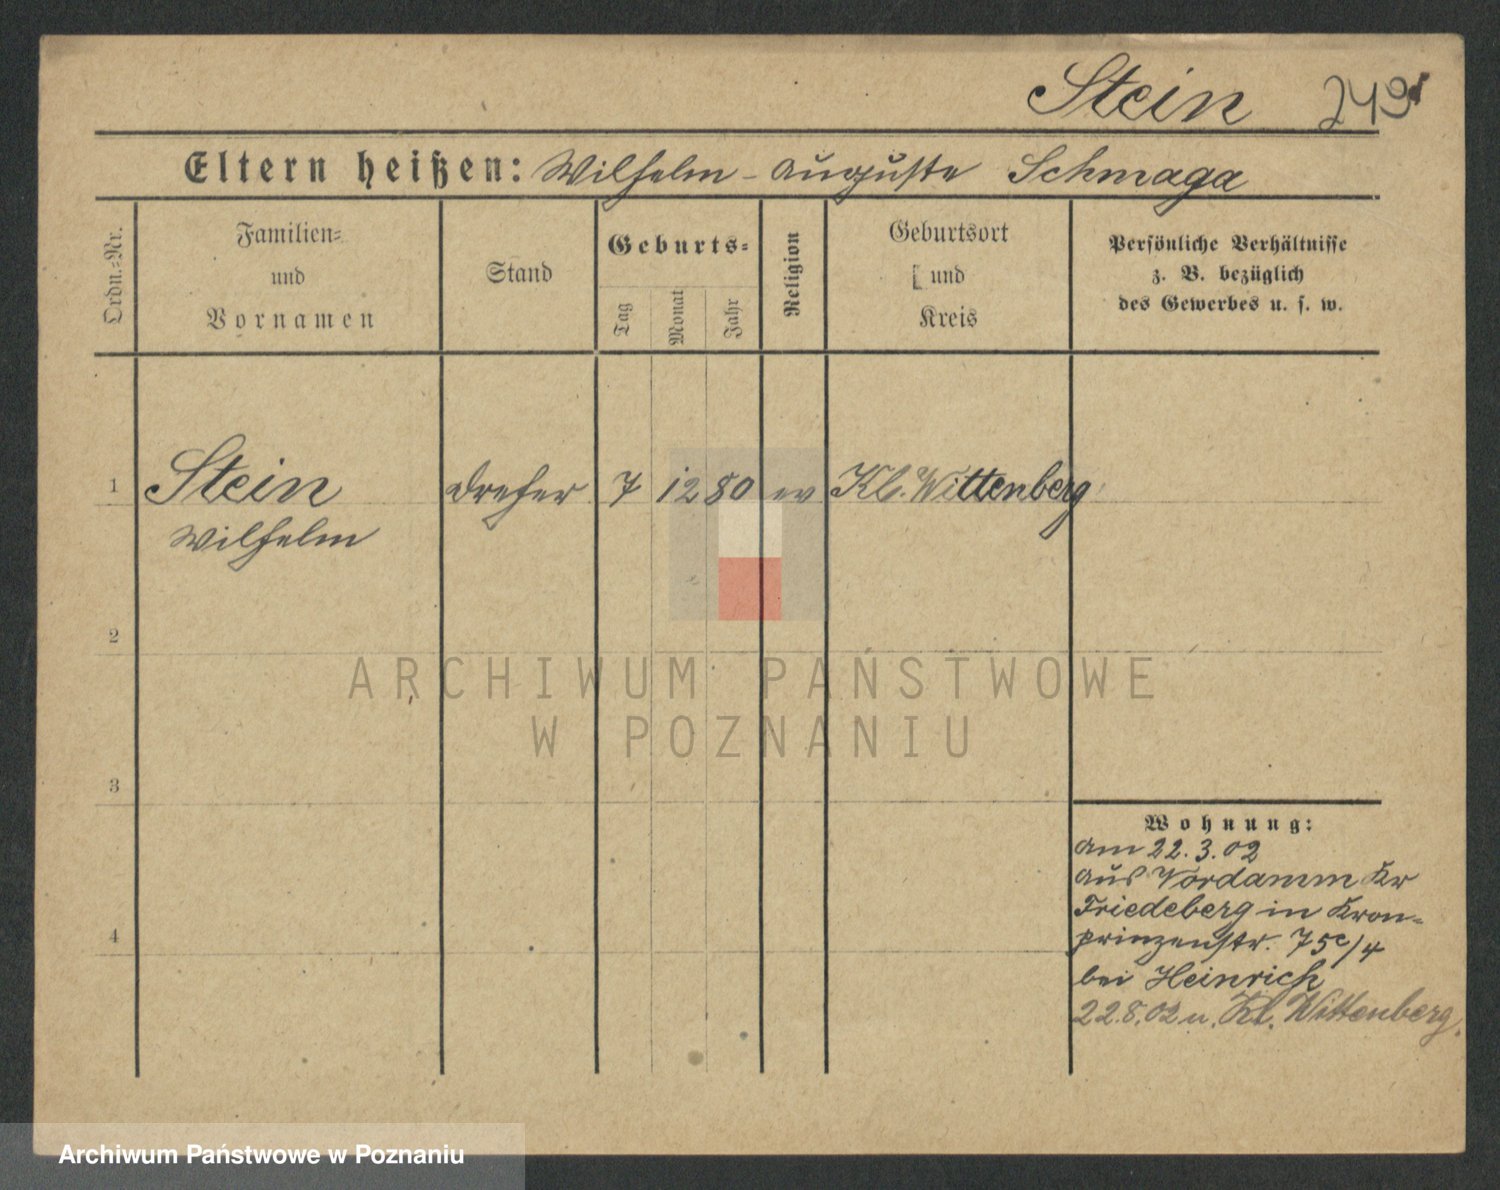 Stein 249
Eltern heißen: Wilhelm - Auguste Schmaga
Ordn.=Nr.
Familien=
und
Vornamen
Stand
Geburts=
Tag
Monat
Jahr
Religion
Geburtsort
und
Kreis
Persönliche Verhältnisse
z. B. bezüglich
des Gewerbes u. s. w.
1 Stein Dreher 7 12 80 ev Kl. Wittenberg
Wilhelm
2
3
4
Wohnung:
am 22.3.02
aus Vordamm Kr
Friedeberg in Kron-
prinzenstr. 75c/4
bei Heinrich
22.8.02 n. Kl. Wittenberg.
ARCHIWUM PAŃSTWOWE
W POZNANIU
Archiwum Państwowe w Poznaniu